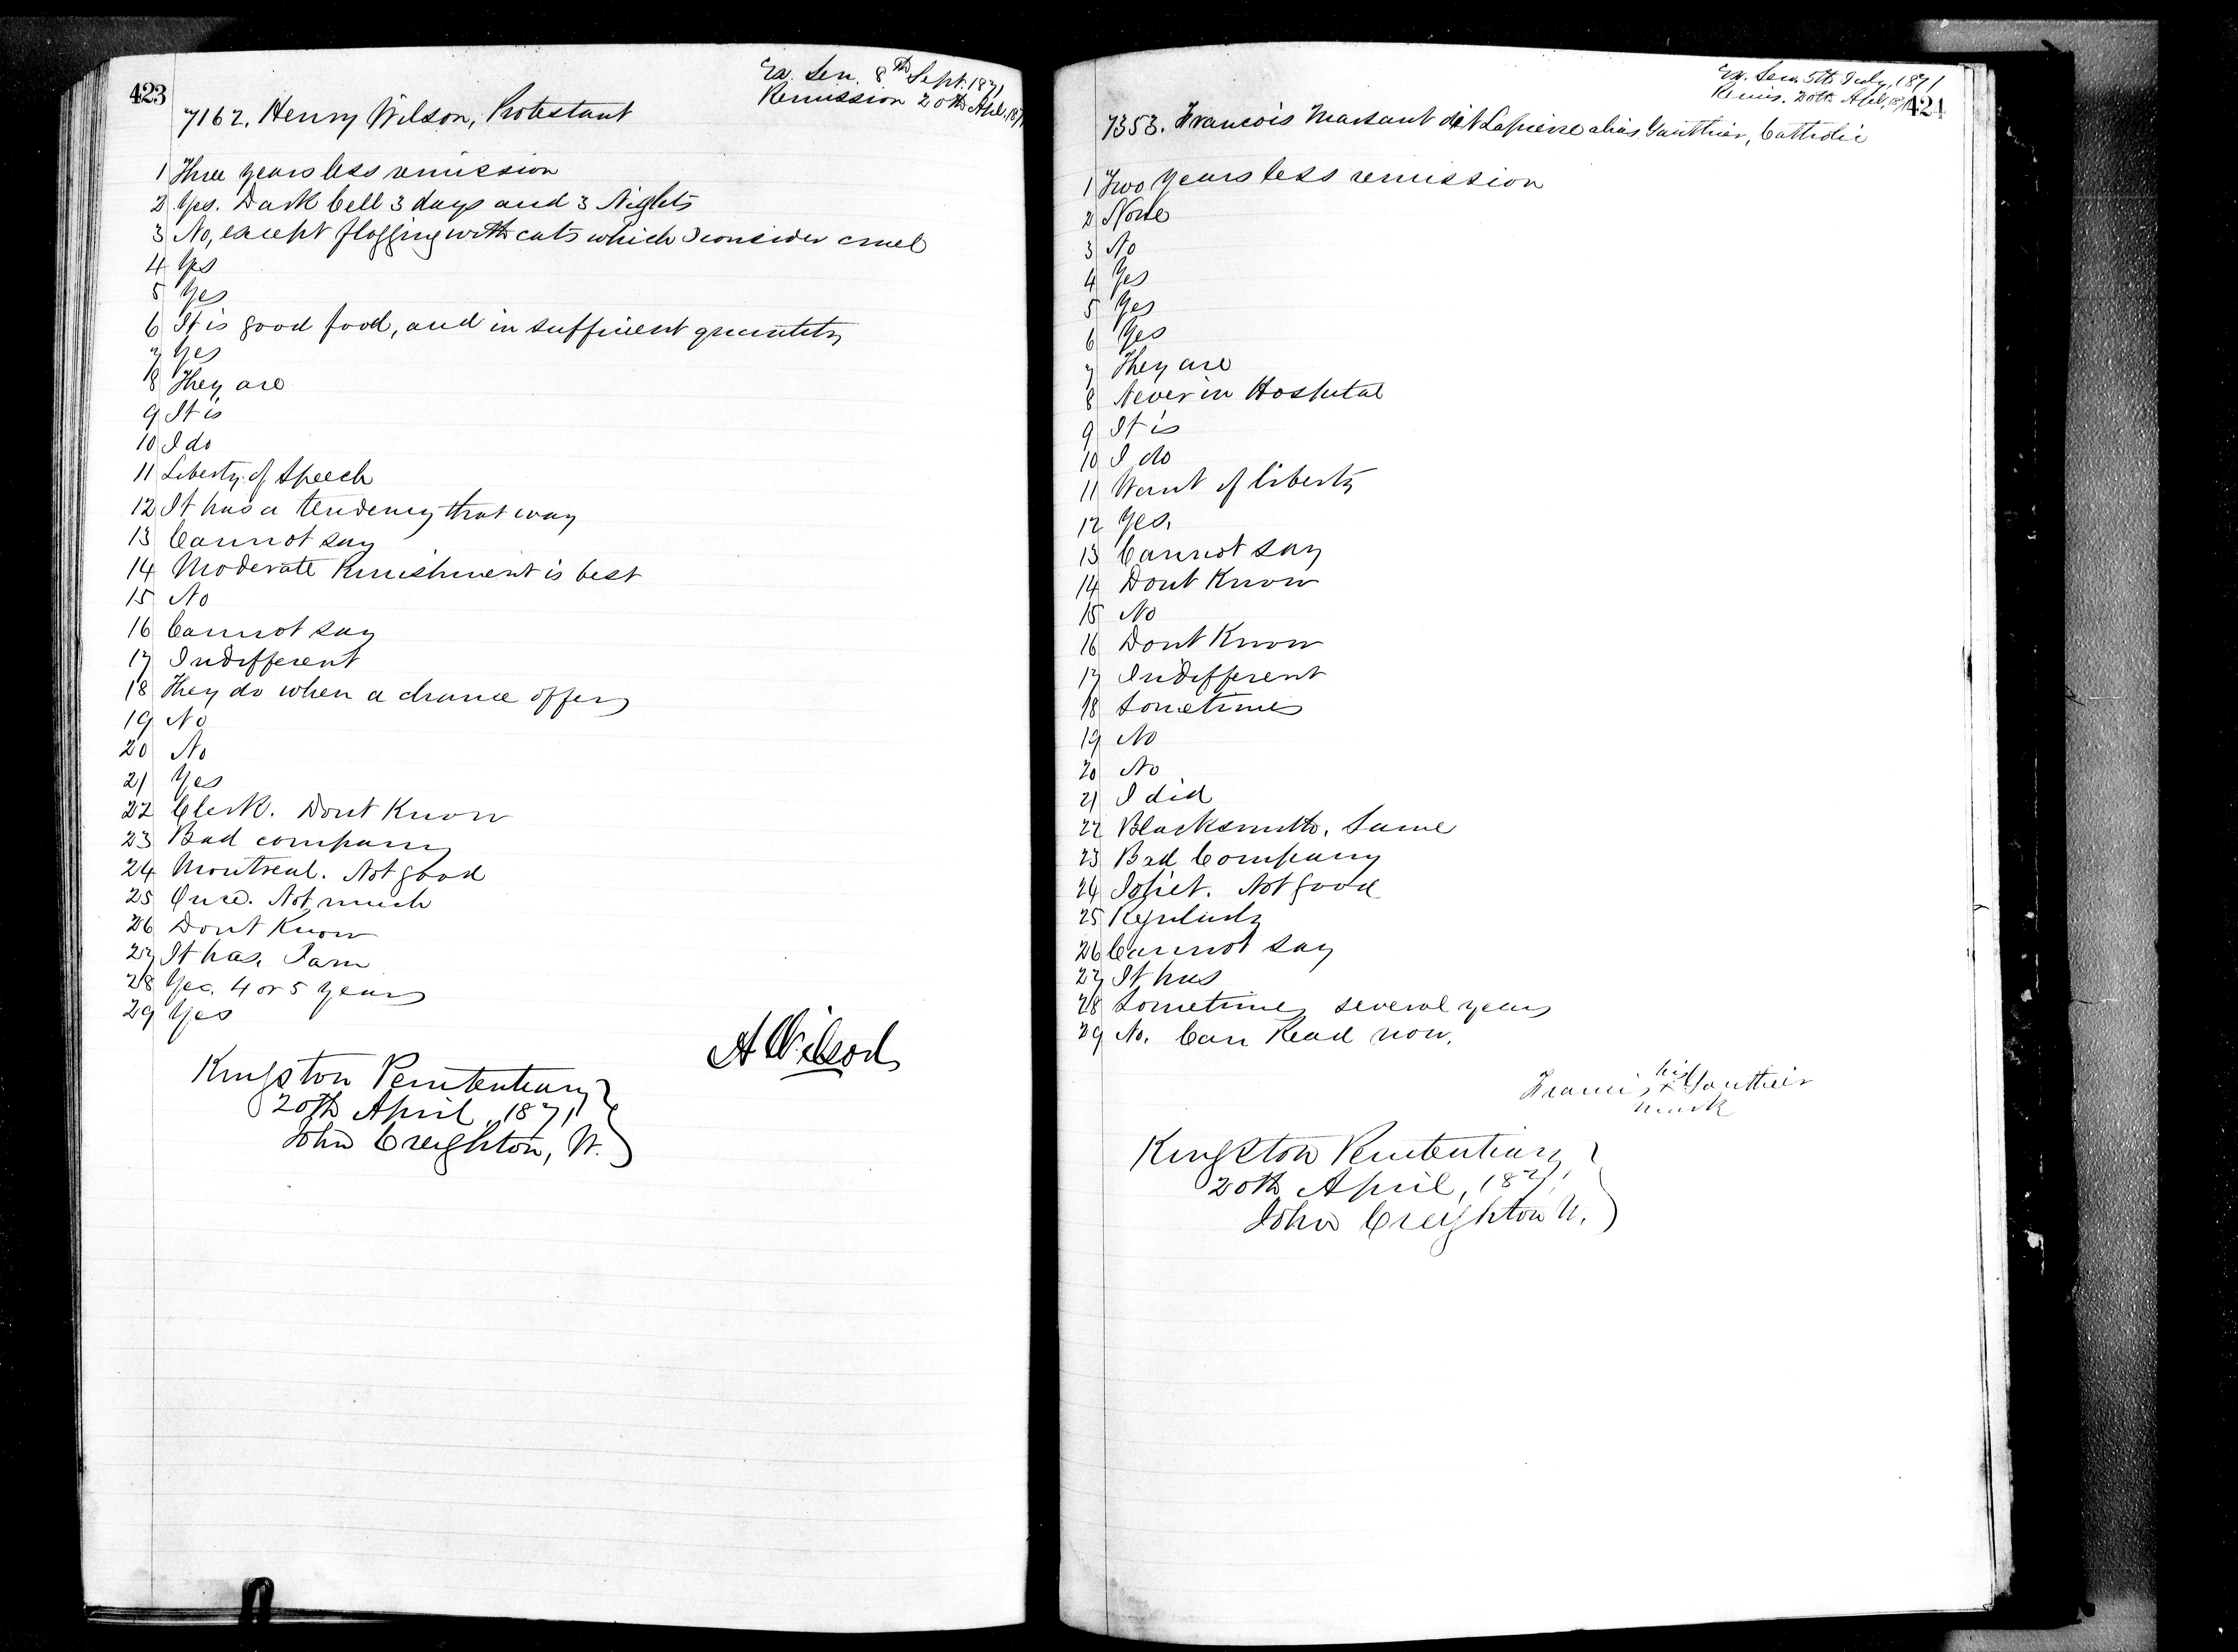 423
Ex. Sen. 8th Sept. 1871
Remission 20th Apl. 1871
7162. Henry Wilson, Protestant
1 Three years less remission
2 Yes. Dark Cell 3 days and 3 Nights
3 No, except flogging with cats which I consider cruel
4 Yes
5 Yes
6 It is good food, and in sufficient quantity
7 Yes
8 They are
9 It is
10 I do
11 Liberty of Speech
12 It has a tendency that way
13 Cannot say
14 Moderate Punishment is best
15 No
16 Cannot say
17 Indifferent
18 They do when a chance offers
19 No
20 No
21 Yes
22 Clerk. Dont Know
23 Bad company
24 Montreal. Not good
25 Once. Not much
26 Dont Know
27 It has. I am
28 Yes. 4 or 5 years
29 Yes
H Wilson
Kingston Penitentiary
20th April, 1871
John Creighton, W.
Ex. Sen. 5th July, 1871
Remis. 20th Apl. 1871
424
7353. Francois Marsant dit Lapierre alias Gauthier, Catholic
1 Two years less remission
2 None
3 No
4 Yes
5 Yes
6 Yes
7 They are
8 Never in Hospital
9 It is
10 I do
11 Want of liberty
12 Yes.
13 Cannot say
14 Dont Know
15 No
16 Dont Know
17 Indifferent
18 Sometimes
19 No
20 No
21 I did
22 Blacksmith. Same
23 Bad Company
24 Joliet. Not good
25 Regularly
26 Cannot say
27 It has
28 Sometimes several years
29 No. Can Read now.
his
Francis x Gauthier
mark
Kingston Penitentiary
20th April, 1871,
John Creighton W.